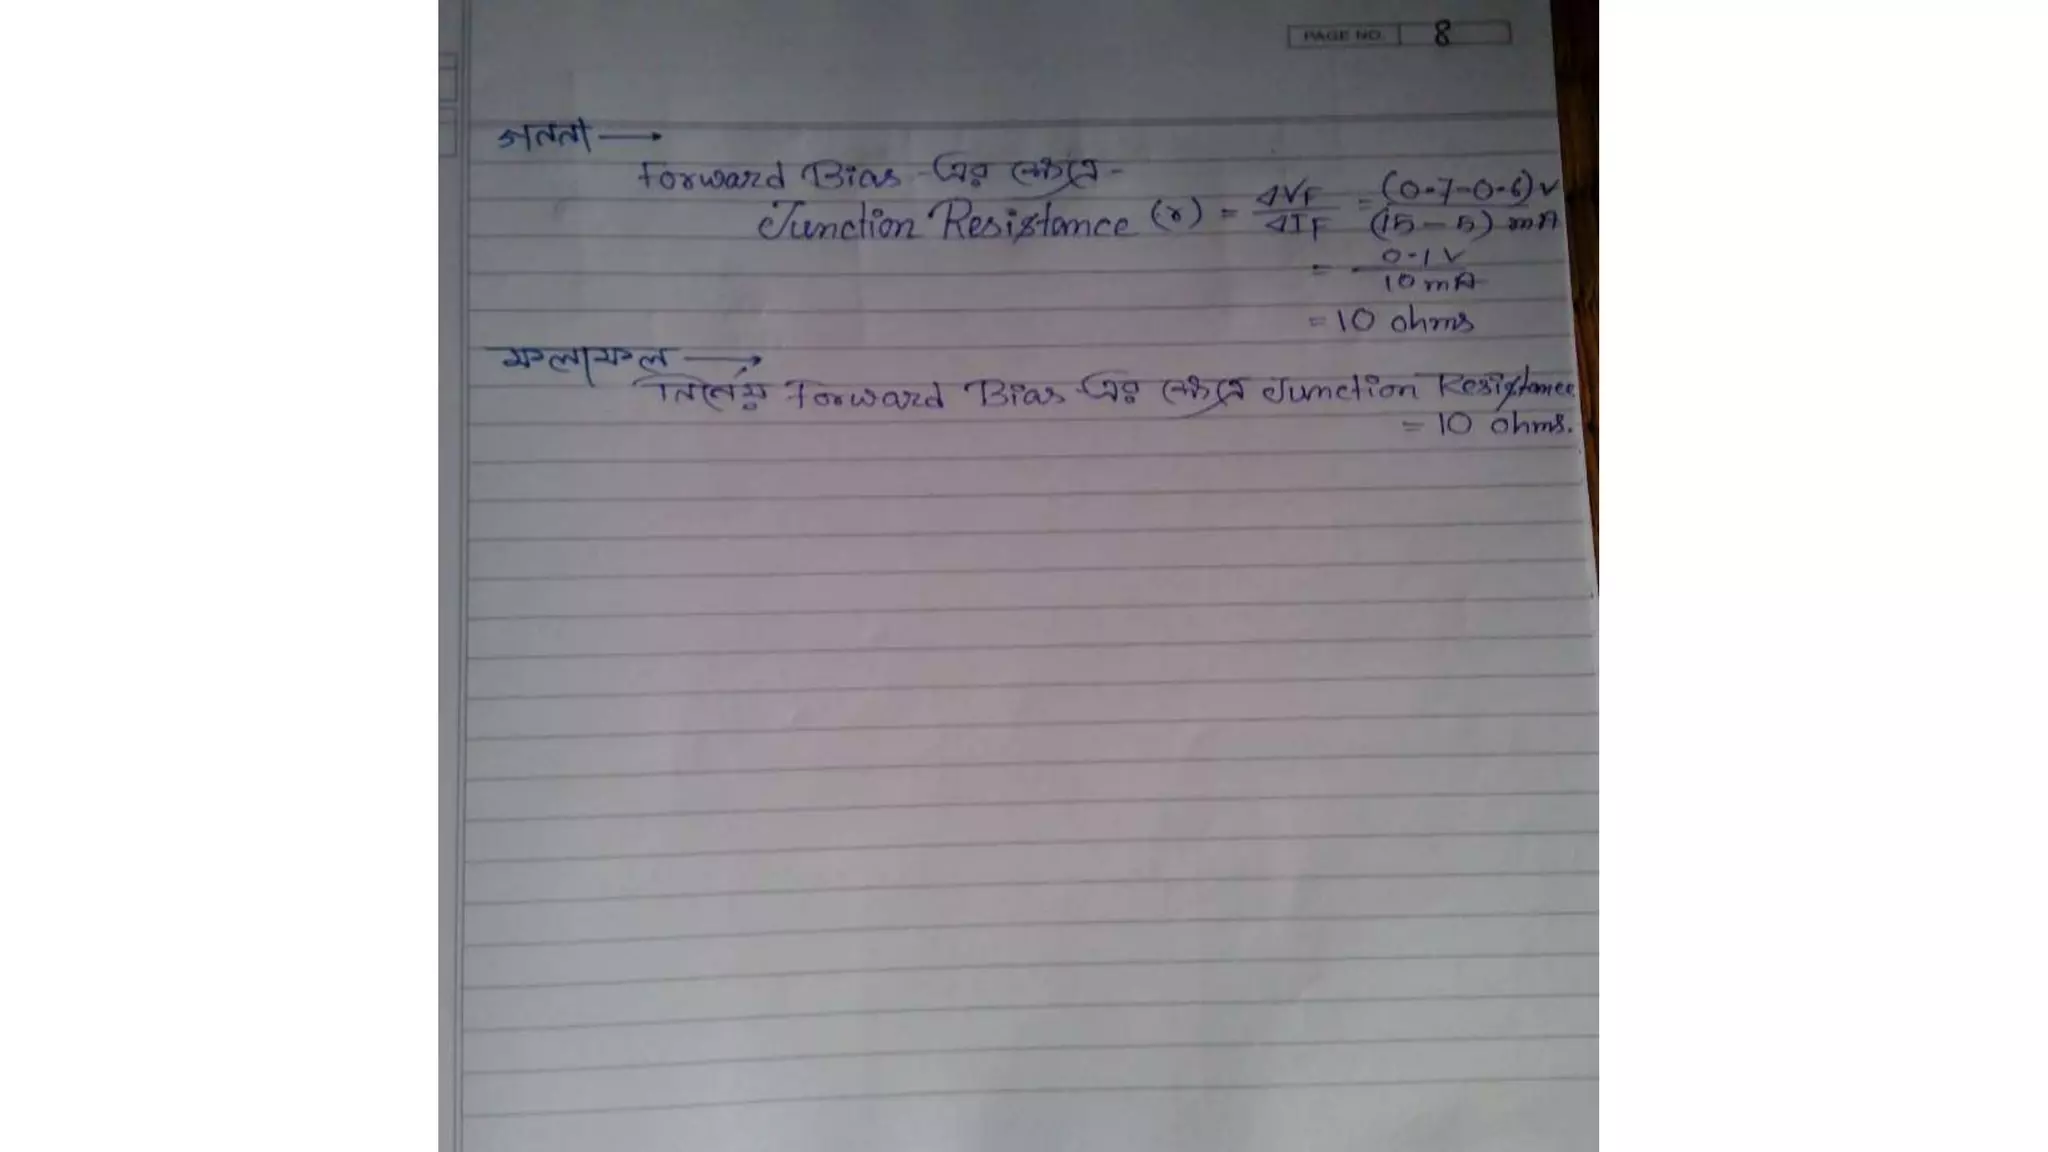 PAGE NO. 8
গননা →
Forward Bias এর ক্ষেত্রে -
Junction Resistance (r) = ΔVF / ΔIF = (0.7-0.6) V / (15-5) mA
= 0.1 V / 10 mA
= 10 ohms
ফলাফল →
নির্নেয় Forward Bias এর ক্ষেত্রে Junction Resistance
= 10 ohms.